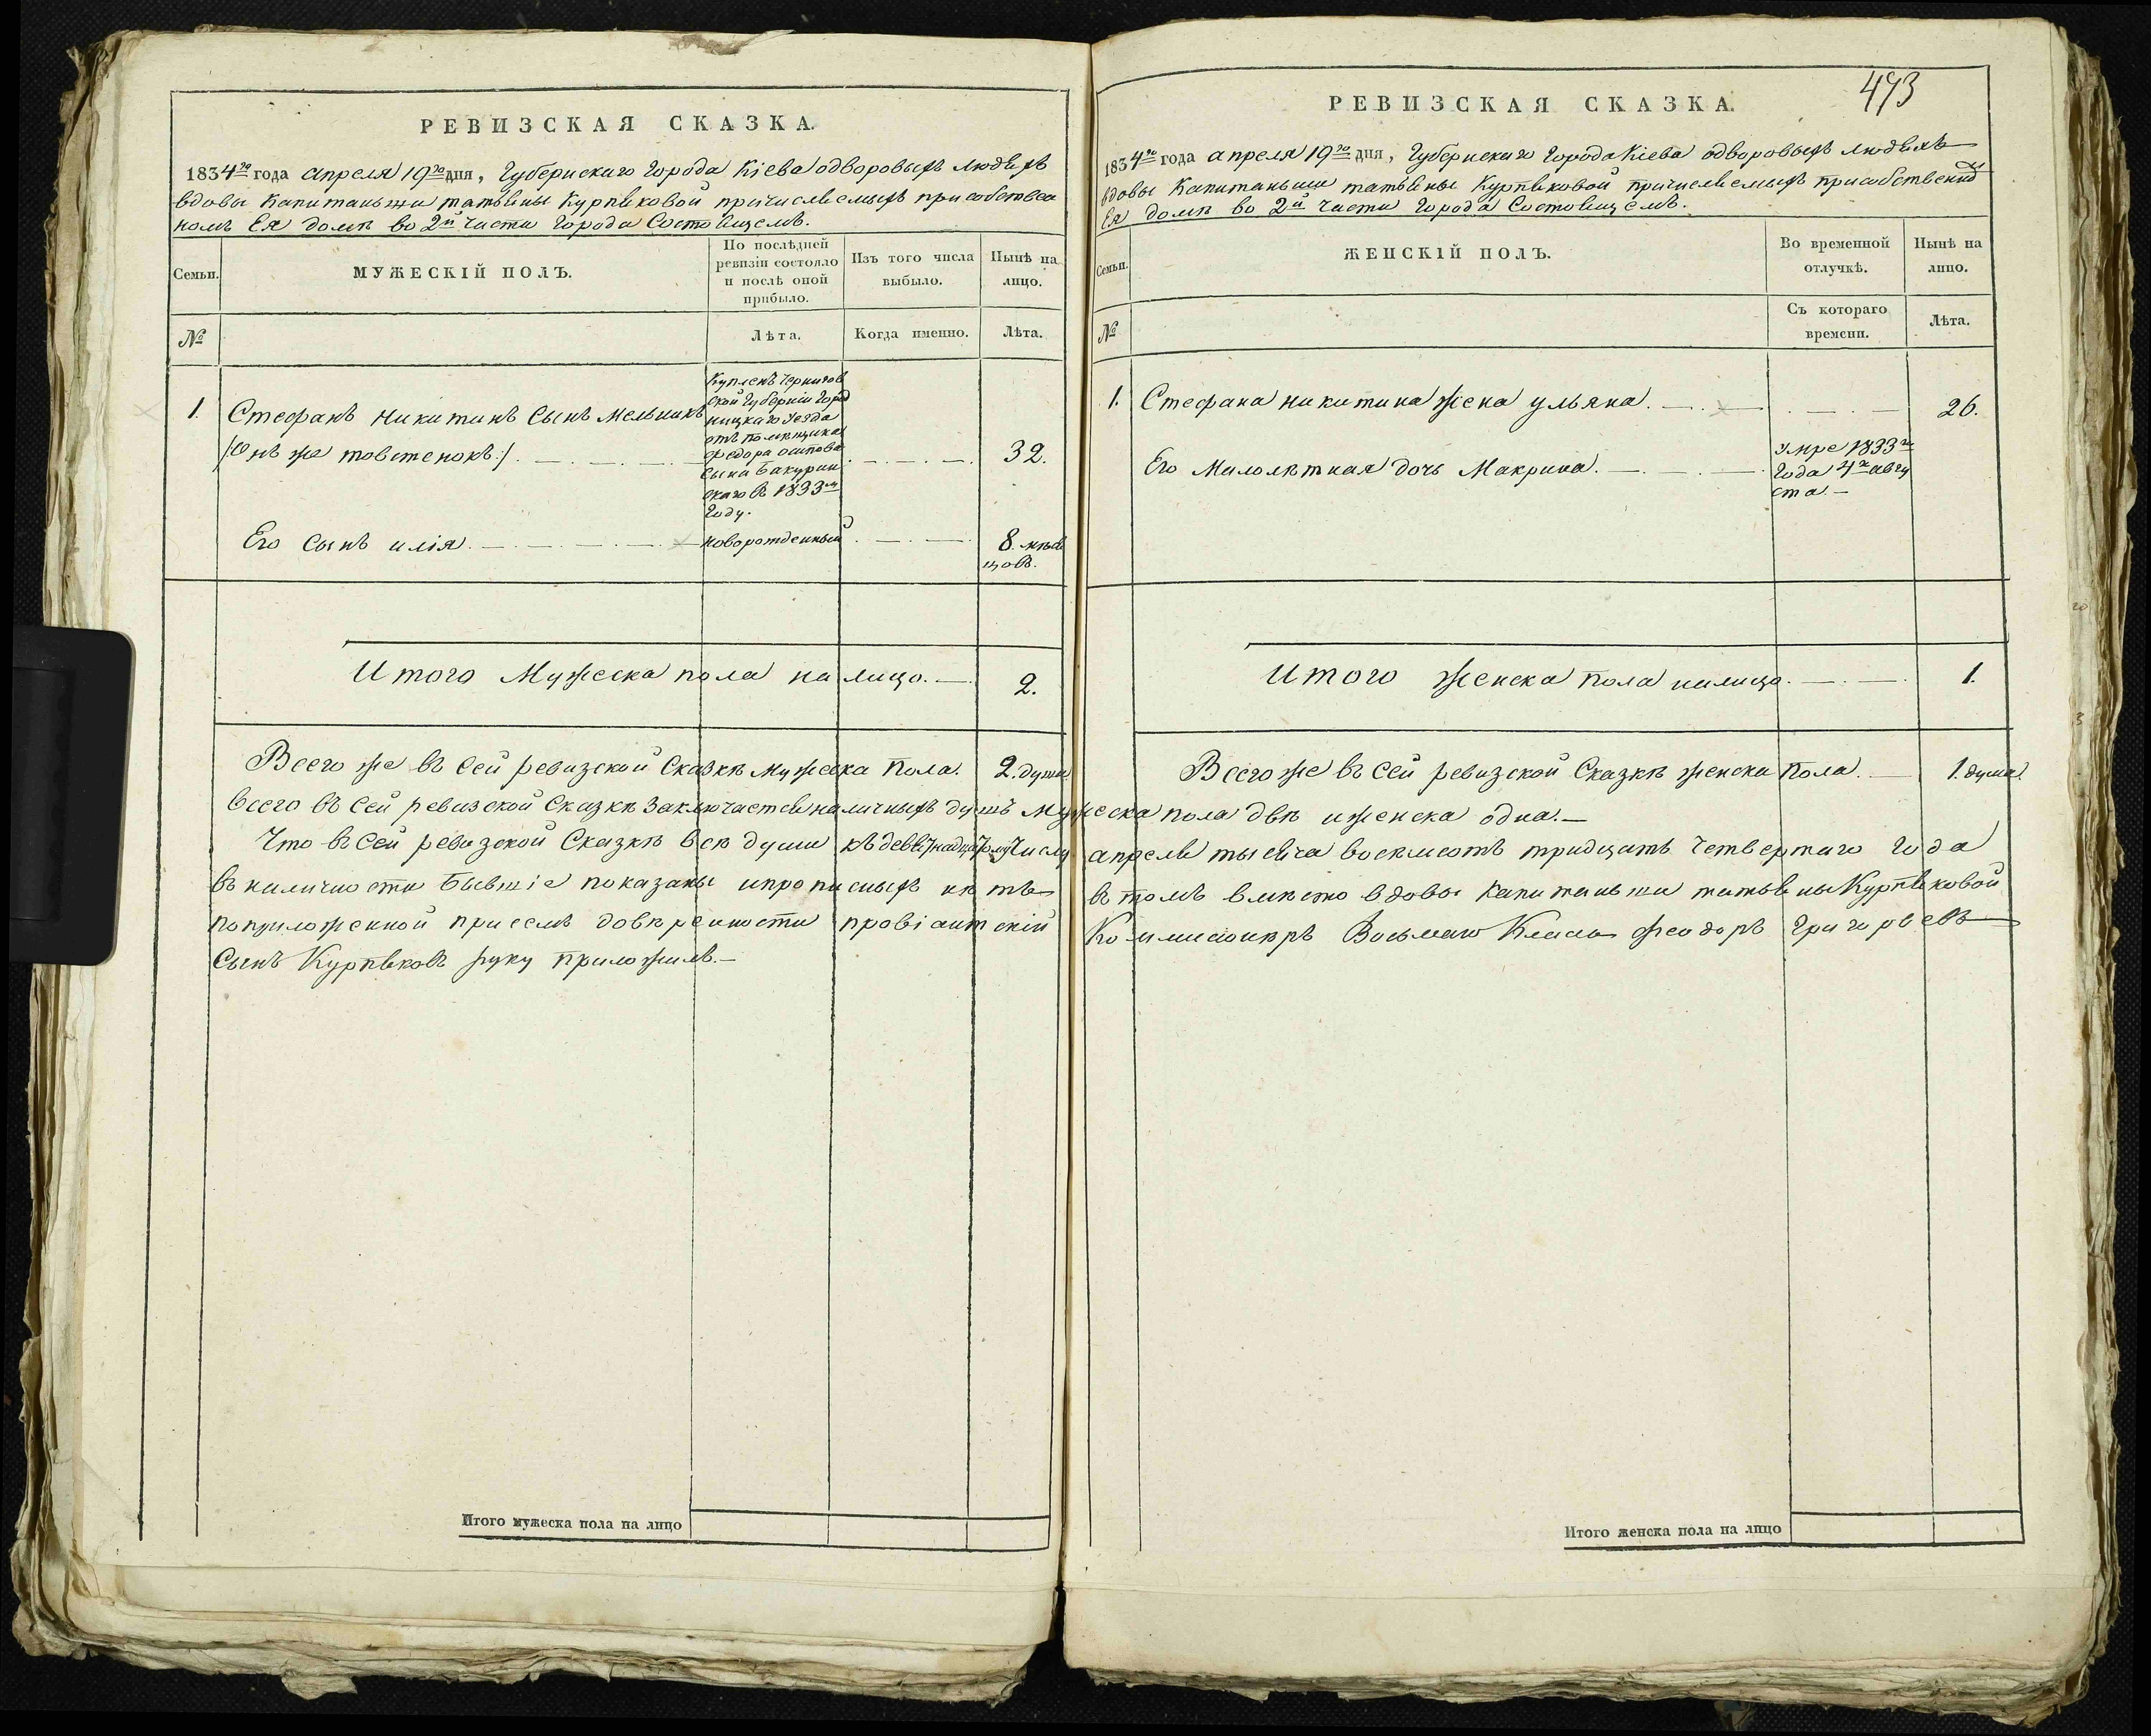 РЕВИЗСКАЯ СКАЗКА.
1834го года апреля 19го дня, Губернскаго Города Кіева одворовыхъ людяхъ
вдовы Капитаньши татьяны Курпѣковой причисляемыхъ присобствен
номъ Ея домѣ во 2й части Города Состоящемъ.
Семьи.
МУЖЕСКІЙ ПОЛЪ.
По послѣдней
ревизіи состояло
и послѣ оной
прибыло.
Изъ того числа
выбыло.
Нынѣ на
лицо.
№
Лѣта.
Когда именно.
Лѣта.
Купленъ Чернигов
ской Губерніи Город
ницкаго Уезда
отъ помѣщика
федора осипова
сына вакурин
скаго въ 1833м
Году.
1. Стефанъ Никитинъ Сынъ Мельникъ
/:Онъ же товстенокъ:/ 32.
Его Сынъ илія. новорожденный 8. мѣся
цовъ.
Итого Мужеска пола на лицо. 2.
Всего же въ сей ревизской Сказкѣ мужеска пола. 2. души
РЕВИЗСКАЯ СКАЗКА.
473
1834го года апреля 19го дня, Губернскаго Города Кіева одворовыхъ людяхъ
вдовы Капитаньши татьяны Курпѣковой причисляемыхъ присобственно
Ея домѣ во 2й части Города Состоящемъ.
Семьи.
ЖЕНСКІЙ ПОЛЪ.
Во временной
отлучкѣ.
Нынѣ на
лицо.
№
Съ котораго
времени.
Лѣта.
1. Стефана никитина жена ульяна. 26.
Его Малолѣтная дочь Макрина.
Умре 1833го
Года 4го авгу
ста.
Итого женска пола налицо. 1.
Всего же въ сей ревизской Сказкѣ женска пола. 1. душа.
всего въ сей ревизской Сказкѣ Заключается наличныхъ душъ мужеска пола двѣ иженска одна.
Что въ сей ревизской Сказкѣ всѣ души къ девятнадцатому Числу апреля тысяча восемсотъ тридцать Четвертаго Года
въ наличности бывшіе показаны ипрописныхъ нѣтъ въ томъ вмѣсто вдовы капитаньши татьяны Курпѣковой
поприложенной присемъ довѣренности провіантскій Коммисіонеръ Восьмаго Класа Феодоръ Григорьевъ
Сынъ Курпѣковъ руку приложилъ.
Итого мужеска пола на лицо
Итого женска пола на лицо